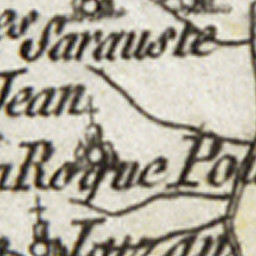 es Sarauste
Jean
a Roque Pou